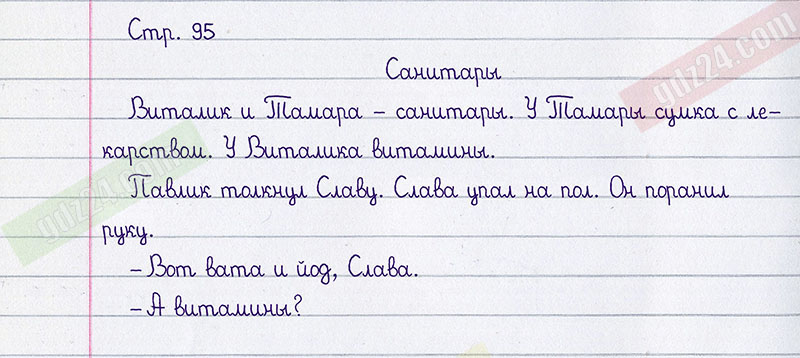 Стр. 95
Санитары
Виталик и Тамара – санитары. У Тамары сумка с ле-
карством. У Виталика витамины.
Павлик толкнул Славу. Слава упал на пол. Он поранил
руку.
– Вот вата и йод, Слава.
– А витамины?
gdz24.com
gdz24.com